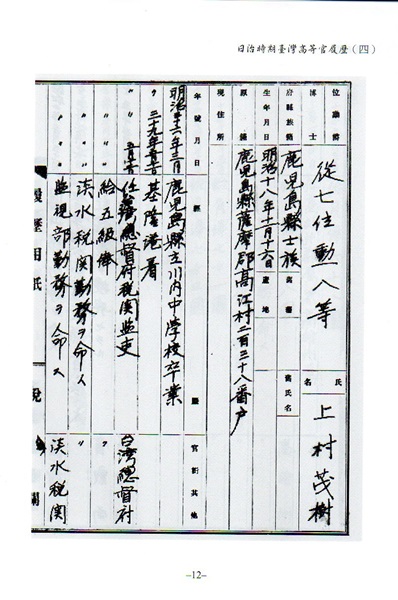 日治時期臺灣高等官履歷（四）
位勳爵
博士
從七位勳八等
氏名
上村茂樹
府縣族籍
鹿児島縣士族
舊氏名
生年月日
明治十八年十二月十六日
產地
原籍
鹿児島縣薩摩郡高江村二百三十八番戶
現住所
年號月日
官衙其他
明治三十六年三月
鹿児島縣立川内中学校卒業
基隆港着
任臺灣總督府税関監吏
台湾總督府
給五級俸
淡水税関勤務ヲ命ス
監視部勤務ヲ命ス
淡水税関
-12-